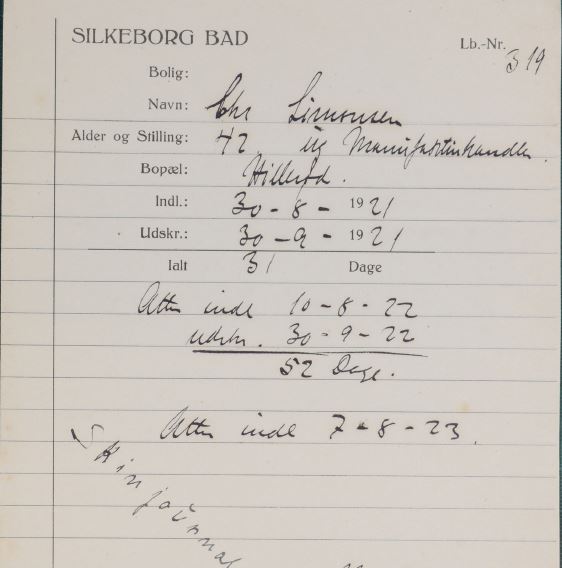 SILKEBORG BAD
Lb.-Nr. 319
Bolig:
Navn: Chr Simonsen
Alder og Stilling: 42 ug Manufakturhandler.
Bopæl: Hillerød.
Indl.: 30 - 8 - 1921
Udskr.: 30 - 9 - 1921
Ialt 31 Dage
Atter indl 10-8-22
udskr. 30-9-22
52 Dage.
Atter indl 7-8-23.